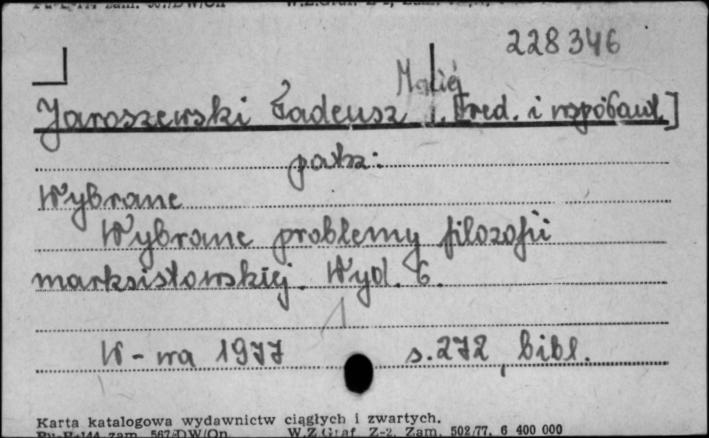 228346
Maciej
Jaroszewski Tadeusz [red. i współaut.]
patrz:
Wybrane
Wybrane problemy filozofii
marksistowskiej. Wyd. 6.
1
W-wa 1977 s. 272, bibl.
Karta katalogowa wydawnictw ciągłych i zwartych.
Pu-K-144 zam. 567/DW/On W.Z.Graf. Z-2, Zam. 502/77. 6 400 000